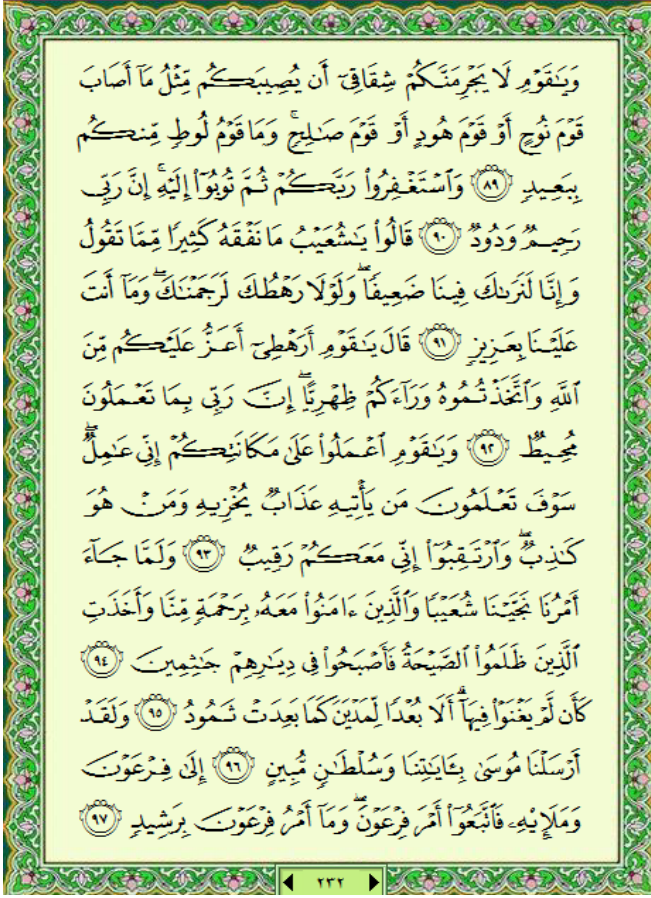 وَيَٰقَوْمِ لَا يَجْرِمَنَّكُمْ شِقَاقِىٓ أَن يُصِيبَكُم مِّثْلُ مَآ أَصَابَ
قَوْمَ نُوحٍ أَوْ قَوْمَ هُودٍ أَوْ قَوْمَ صَٰلِحٍ ۚ وَمَا قَوْمُ لُوطٍ مِّنكُم
بِبَعِيدٍ ٨٩ وَٱسْتَغْفِرُوا۟ رَبَّكُمْ ثُمَّ تُوبُوٓا۟ إِلَيْهِ ۚ إِنَّ رَبِّى
رَحِيمٌ وَدُودٌ ٩٠ قَالُوا۟ يَٰشُعَيْبُ مَا نَفْقَهُ كَثِيرًا مِّمَّا تَقُولُ
وَإِنَّا لَنَرَىٰكَ فِينَا ضَعِيفًا ۖ وَلَوْلَا رَهْطُكَ لَرَجَمْنَٰكَ ۖ وَمَآ أَنتَ
عَلَيْنَا بِعَزِيزٍ ٩١ قَالَ يَٰقَوْمِ أَرَهْطِىٓ أَعَزُّ عَلَيْكُم مِّنَ
ٱللَّهِ وَٱتَّخَذْتُمُوهُ وَرَآءَكُمْ ظِهْرِيًّا ۖ إِنَّ رَبِّى بِمَا تَعْمَلُونَ
مُحِيطٌ ٩٢ وَيَٰقَوْمِ ٱعْمَلُوا۟ عَلَىٰ مَكَانَتِكُمْ إِنِّى عَٰمِلٌ ۖ
سَوْفَ تَعْلَمُونَ مَن يَأْتِيهِ عَذَابٌ يُخْزِيهِ وَمَنْ هُوَ
كَٰذِبٌ ۖ وَٱرْتَقِبُوٓا۟ إِنِّى مَعَكُمْ رَقِيبٌ ٩٣ وَلَمَّا جَآءَ
أَمْرُنَا نَجَّيْنَا شُعَيْبًا وَٱلَّذِينَ ءَامَنُوا۟ مَعَهُۥ بِرَحْمَةٍ مِّنَّا وَأَخَذَتِ
ٱلَّذِينَ ظَلَمُوا۟ ٱلصَّيْحَةُ فَأَصْبَحُوا۟ فِى دِيَٰرِهِمْ جَٰثِمِينَ ٩٤
كَأَن لَّمْ يَغْنَوْا۟ فِيهَآ ۗ أَلَا بُعْدًا لِّمَدْيَنَ كَمَا بَعِدَتْ ثَمُودُ ٩٥ وَلَقَدْ
أَرْسَلْنَا مُوسَىٰ بِـَٔايَٰتِنَا وَسُلْطَٰنٍ مُّبِينٍ ٩٦ إِلَىٰ فِرْعَوْنَ
وَمَلَإِي۟هِۦ فَٱتَّبَعُوٓا۟ أَمْرَ فِرْعَوْنَ ۖ وَمَآ أَمْرُ فِرْعَوْنَ بِرَشِيدٍ ٩٧
٢٣٢